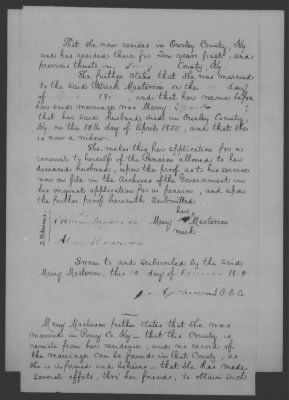 That she now resides in Owsley County, Ky
and has resided there for ten years past, and
previous thereto in Perry County, Ky.
She further states that she was married
to the said Patrick Masterson on the day
of 18 , and that her name before
her said marriage was Mary
that her said husband died in Owsley County,
Ky. on the 10th day of April 1853, and that she
is now a widow.
She makes this her application for a
renewal to herself of the Pension allowed to her
deceased husband, upon the proof as to his services
now on file in the Archives of the Government in
his original application for a pension, and upon
the further proof herewith submitted.
her
Mary Masterson
mark
Sworn to and subscribed by the said
Mary Masterson, this 10 day of 18
P.O.C.
Mary Masterson further states that she was
married in Perry Co Ky – that this County is
remote from her residence, and no record of
the marriage can be found in that County, as
she is informed and believes – that she has made
several efforts, thro' her friends, to obtain such